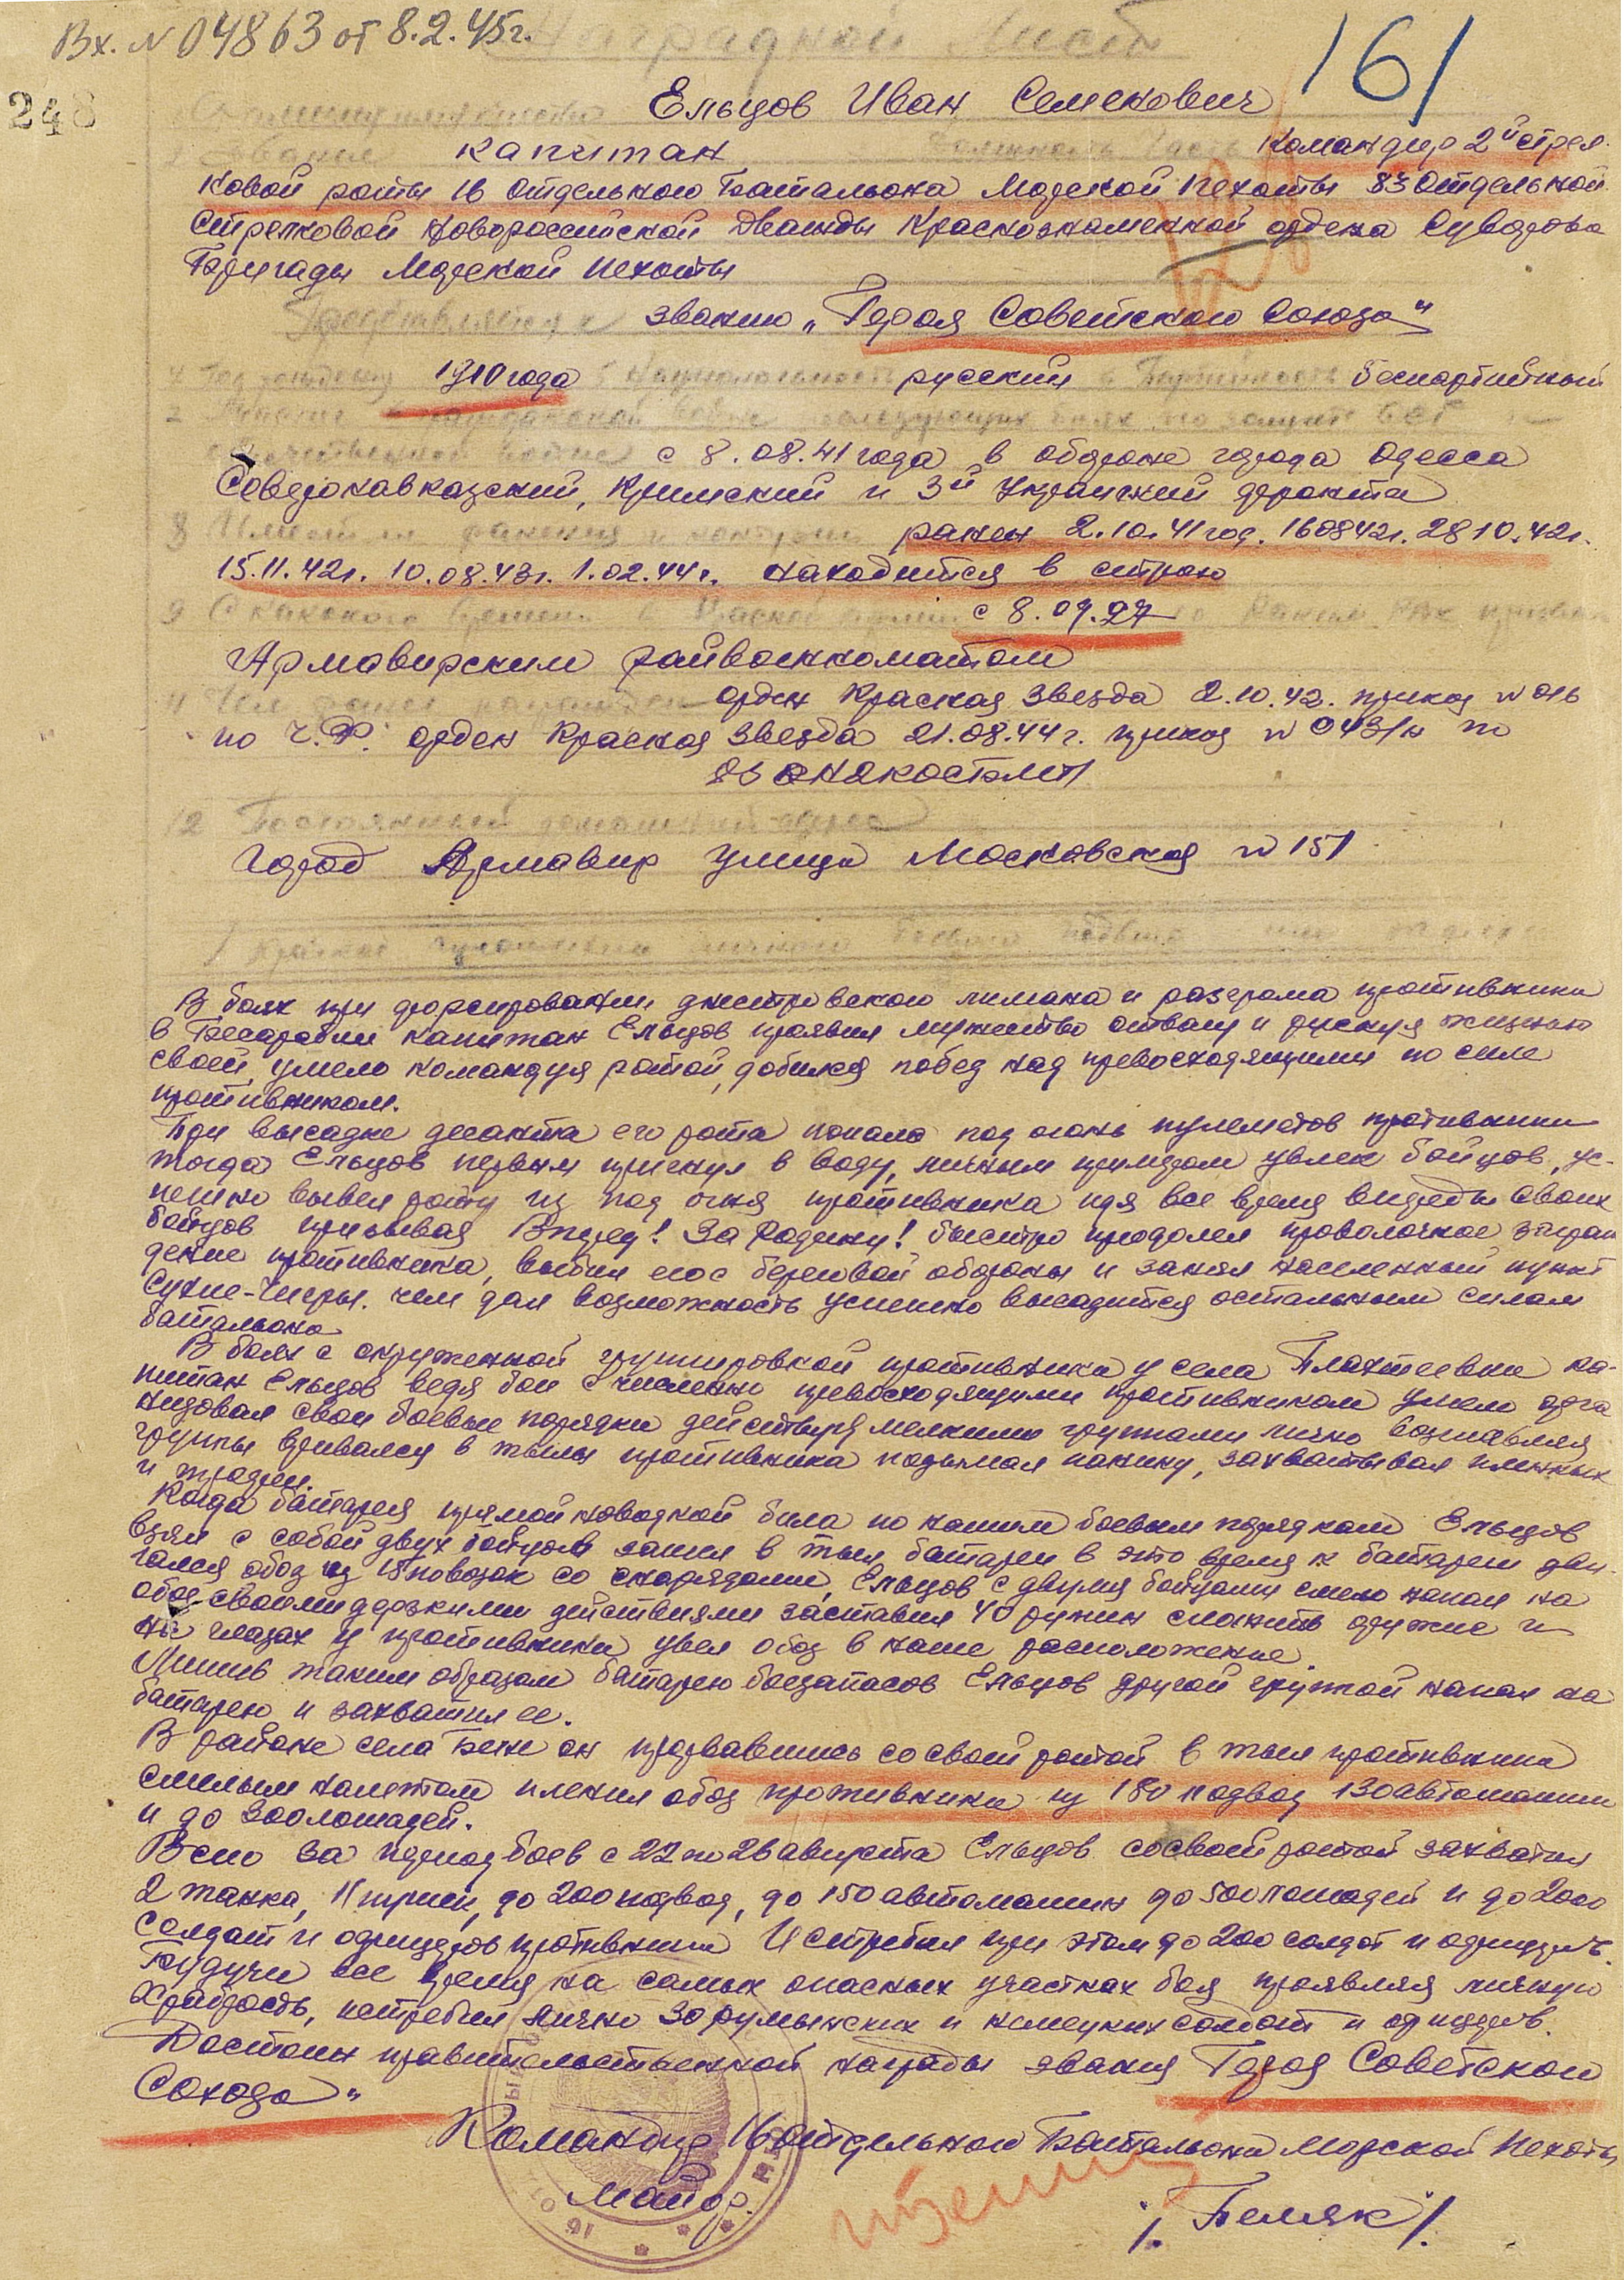 Вх. № 04863 от 8.2.45г.
Наградной Лист
161
248
Ельцов Иван Семенович
Звание капитан Должность Часть Командир 2й стрел-
ковой роты 16 Отдельного Батальона Морской Пехоты 83 Отдельной
Стрелковой Новороссийской дважды Краснознаменной ордена Суворова
Бригады Морской Пехоты
Представляется к званию „Героя Советского Союза"
4 Год рождения 1910 года 5 Национальность русский 6 Партийность беспартийный
с 8.08.41 года в обороне города Одесса
Северокавказский, Кримский и 3й Украинкий фронта
8 Имеет ли ранения и контузии ранен 2.10.41 год. 16 08 42г. 28 10.42г.
15.11.42г. 10.08.43г. 1.02.44г. находится в строю
9 С какого времени в Красной армии с 8.09.27
Армавирским райвоенкоматом
орден Красная Звезда 2.10.42. приказ № 016
по Ч.Ф. орден Красная Звезда 21.08.44г. приказ № 043/н по
83
12 Постоянный домашний адрес
город Армавир улица Московская № 151
В боях при форсировании днестровского лимана и разгрома противника
в Бесарабии капитан Ельцов проявил мужество отвагу и рискуя жизнью
своей, умело командуя ротой, добился побед над превосходящими по силе
противником.
При высадке десанта его рота попала под огонь пулеметов противника
тогда Ельцов первым прыгнул в воду, личным примером увлек бойцов, ус-
пешно вывел роту из под огня противника идя все время впереди своих
бойцов призывая Вперед! За Родину! быстро преодолел проволочное заграж
дение противника, выбил его с береговой обороны и занял населенный пункт
чем дал возможность успешно высадится остальным силам
батальона
В боях с окруженной групировкой противника у села Плахтеевка ка-
питан Ельцов ведя бои с численно превосходящими противником умело орга
низовал свои боевые порядки действуя мелкими группами лично возглавляя
группы врывался в тылы противника подымая панику, захватывая пленных
и трофеи.
Когда батарея прямой наводкой била по нашим боевым порядкам Ельцов
взял с собой двух бойцов зашел в тыл батареи в это время к батареи дви-
гался обоз из 18 повозок со снарядами, Ельцов с двумя бойцами смело напал на
обоз своими дерзкими действиями заставил 40 румын сложить оружие и
на глазах у противника увел обоз в наше расположение.
Лишив таким образом батарею боезапасов Ельцов другой группой напал на
батарею и захватил ее.
В районе села он прорвавшись со своей ротой в тыл противника
смелым налетом пленил обоз противника из 180 подвод 130 автомашин
и до 300 лошадей.
Всего за период боев с 22 по 26 августа Ельцов со своей ротой захватил
2 танка, 11 до 200 подвод, до 150 автомашин до 500 лошадей и до 2000
солдат и офицеров противника Истребил при этом до 200 солдат и офицеров.
Будучи все время на самых опасных участках боя проявляя личную
храбрость, истребил лично 30 румынских и немецких солдат и офицеров.
Достоин правительственной награды звания Героя Советского
Союза"
Командир 16 отдельного Батальона Морской Пехоты
Майор.
/. Пемяк /.